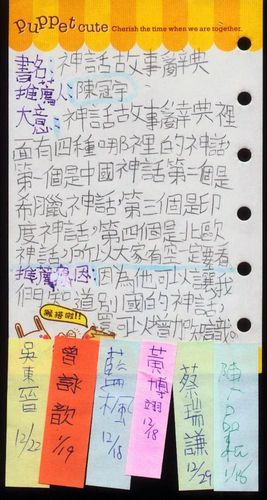 Puppet cute Cherish the time when we are together.
書名:神話故事辭典
推薦人:陳冠宇
大意:神話故事辭典裡
面有四種哪裡的神話,
第一個是中國神話第二個是
希臘神話,第三個是印
度神話,第四個是北歐
神話,所以大家有空去看看
推薦原因:因為他可以讓我
們知道別國的神話,
還可以增加知識。
猴搭啦!!
吳東晉 12/22
曾詠歆 1/19
藍楓 12/18
黃博翊 12/18
蔡瑞謙 12/29
陳 1/18